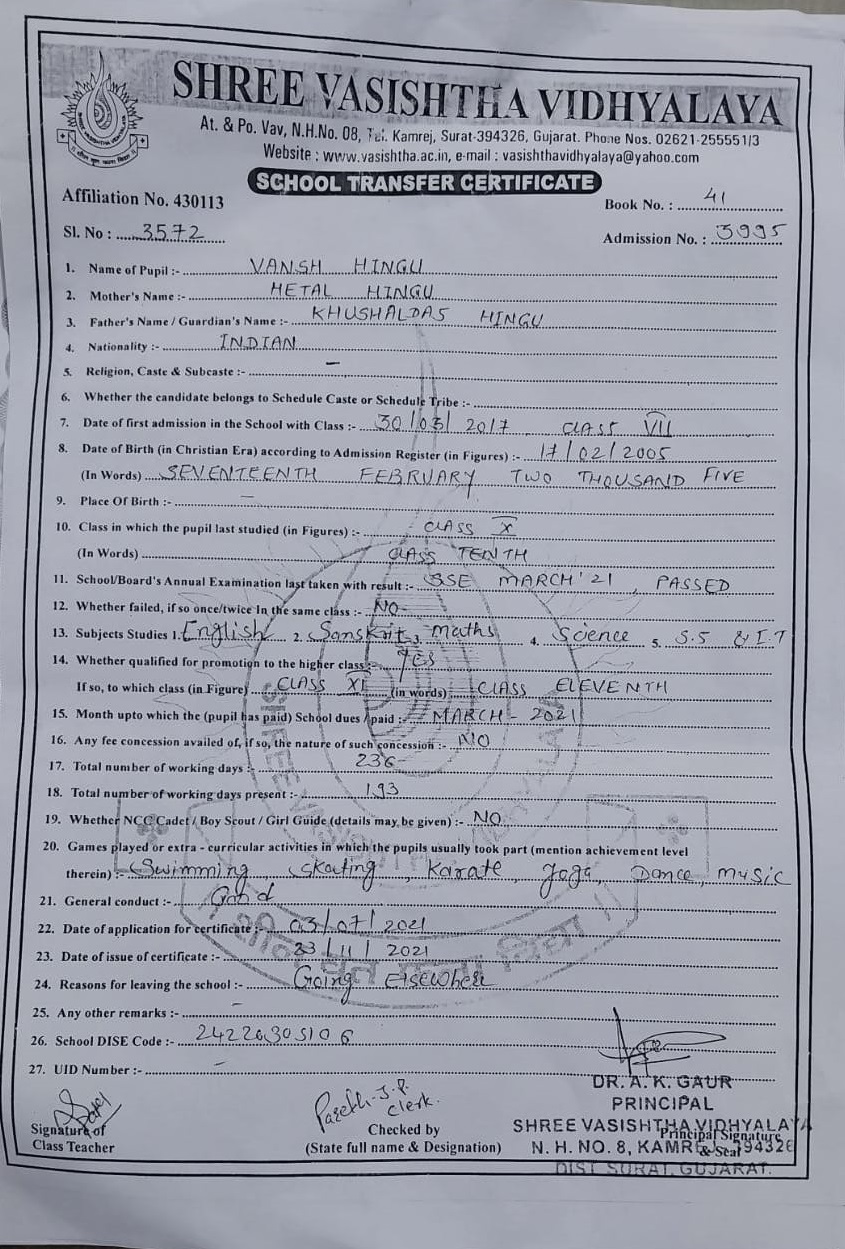 SHREE VASISHTHA VIDHYALAYA
At. & Po. Vav, N.H.No. 08, Tal. Kamrej, Surat-394326, Gujarat. Phone Nos. 02621-255551/3
Website : www.vasishtha.ac.in, e-mail : vasishthavidhyalaya@yahoo.com
SCHOOL TRANSFER CERTIFICATE
Affiliation No. 430113
Book No. : 41
Sl. No : 3572
Admission No. : 3995
1. Name of Pupil :- VANSH HINGU
2. Mother's Name :- HETAL HINGU
3. Father's Name / Guardian's Name :- KHUSHALDAS HINGU
4. Nationality :- INDIAN
5. Religion, Caste & Subcaste :- —
6. Whether the candidate belongs to Schedule Caste or Schedule Tribe :-
7. Date of first admission in the School with Class :- 30/03/2017 CLASS VII
8. Date of Birth (in Christian Era) according to Admission Register (in Figures) :- 17/02/2005
(In Words) SEVENTEENTH FEBRUARY TWO THOUSAND FIVE
9. Place Of Birth :- —
10. Class in which the pupil last studied (in Figures) :- CLASS X
(In Words) CLASS TENTH
11. School/Board's Annual Examination last taken with result :- SSE MARCH'21, PASSED
12. Whether failed, if so once/twice In the same class :- NO
13. Subjects Studies 1. English 2. Sanskrit 3. maths 4. Science 5. S.S & I.T
14. Whether qualified for promotion to the higher class :- YES
If so, to which class (in Figure) CLASS XI (in words) CLASS ELEVENTH
15. Month upto which the (pupil has paid) School dues / paid :- MARCH - 2021
16. Any fee concession availed of, if so, the nature of such concession :- NO
17. Total number of working days :- 236
18. Total number of working days present :- 193
19. Whether NCC Cadet / Boy Scout / Girl Guide (details may be given) :- NO
20. Games played or extra - curricular activities in which the pupils usually took part (mention achievement level
therein) :- Swimming, Skating, Karate, Yoga, Dance, music
21. General conduct :- Good
22. Date of application for certificate :- 03/07/2021
23. Date of issue of certificate :- 23/11/2021
24. Reasons for leaving the school :- Going Elsewhere
25. Any other remarks :- —
26. School DISE Code :- 24226305106
27. UID Number :- —
DR. A. K. GAUR
PRINCIPAL
SHREE VASISHTHA VIDHYALAYA
N. H. NO. 8, KAMREJ 394326
DIST SURAT, GUJARAT.
Signature of
Class Teacher
clerk.
Checked by
(State full name & Designation)
Principal Signature
& Seal